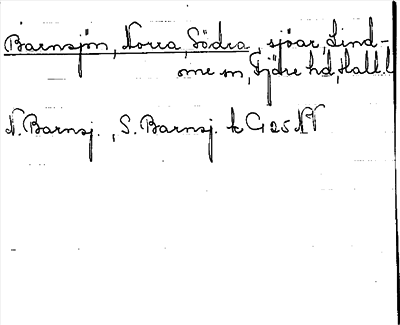 Barnsjön, Norra, Södra, sjöar, Lind-
ome sn, Fjäre hd, Hall. l
N. Barnsj., S. Barnsj. tk G 25 NV